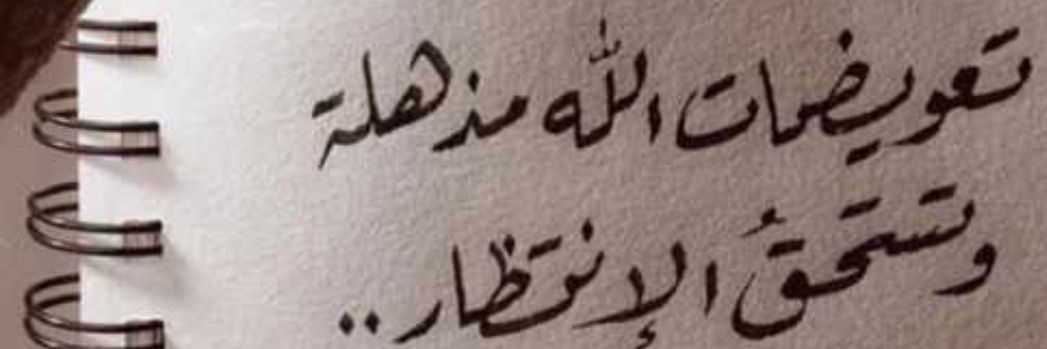 تعويضات الله مذهلة
وتستحقُ الإنتظار..